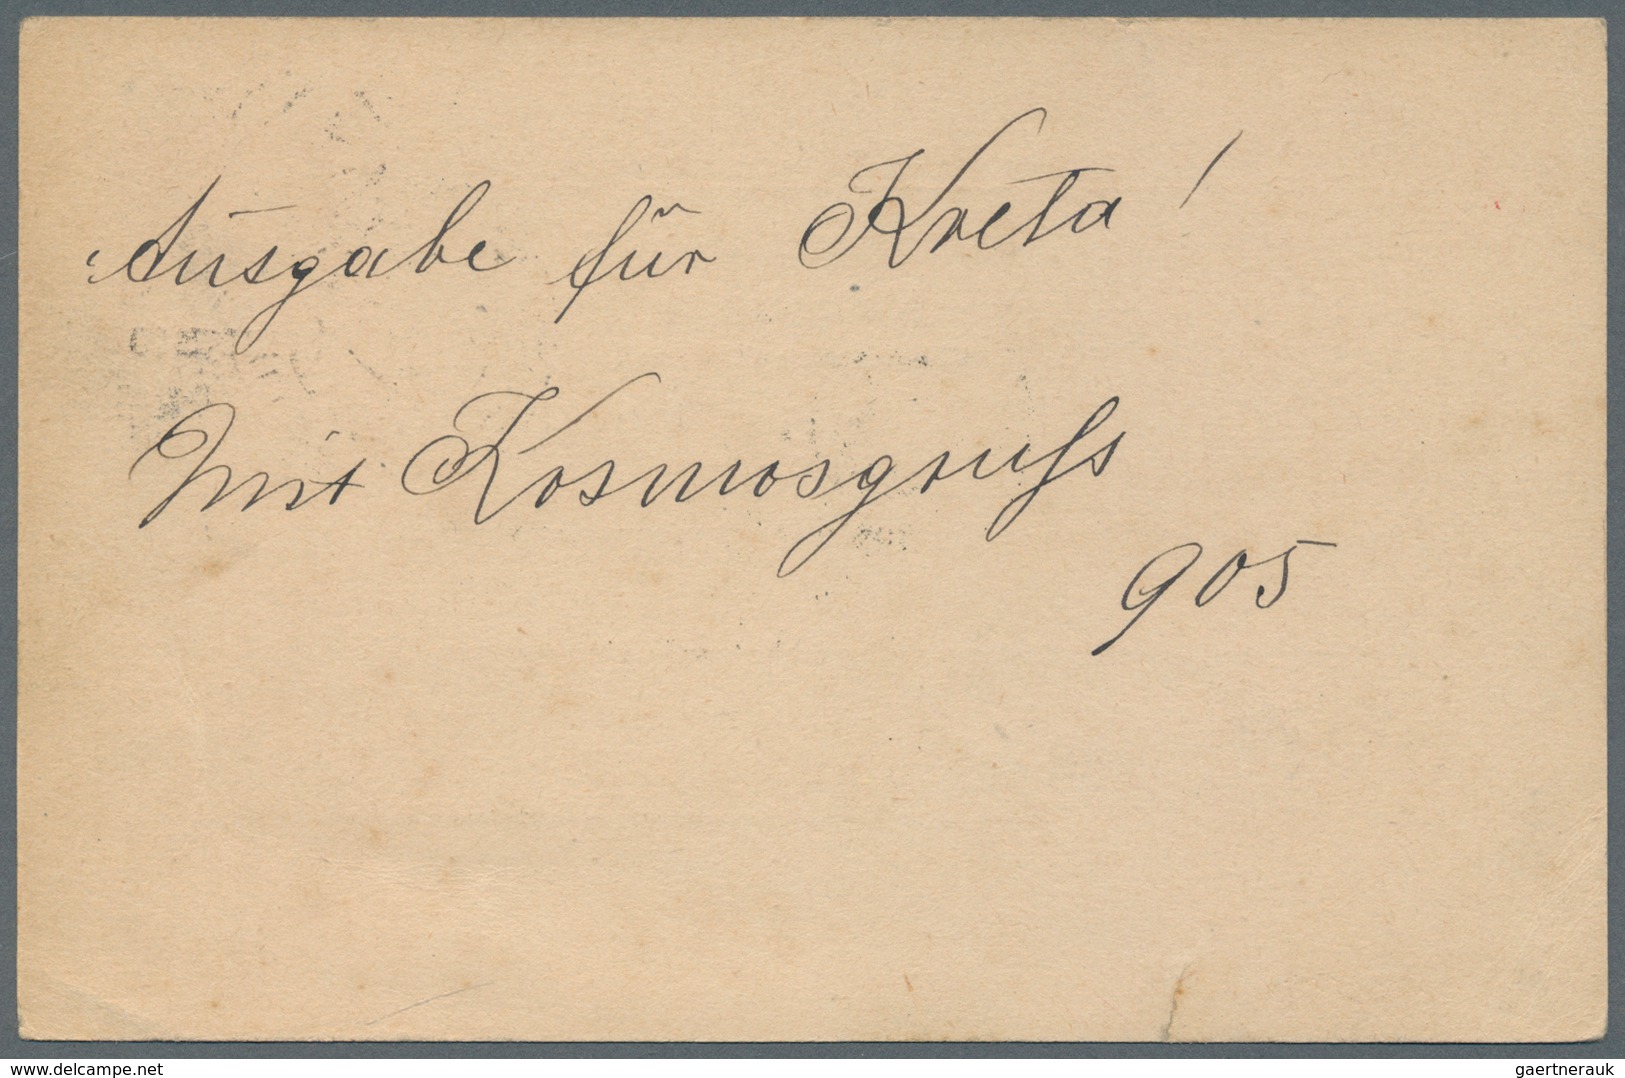 Ausgabe für Kreta!
Mit Kosmosgruſs
905
www.delcampe.net
gaertnerauk